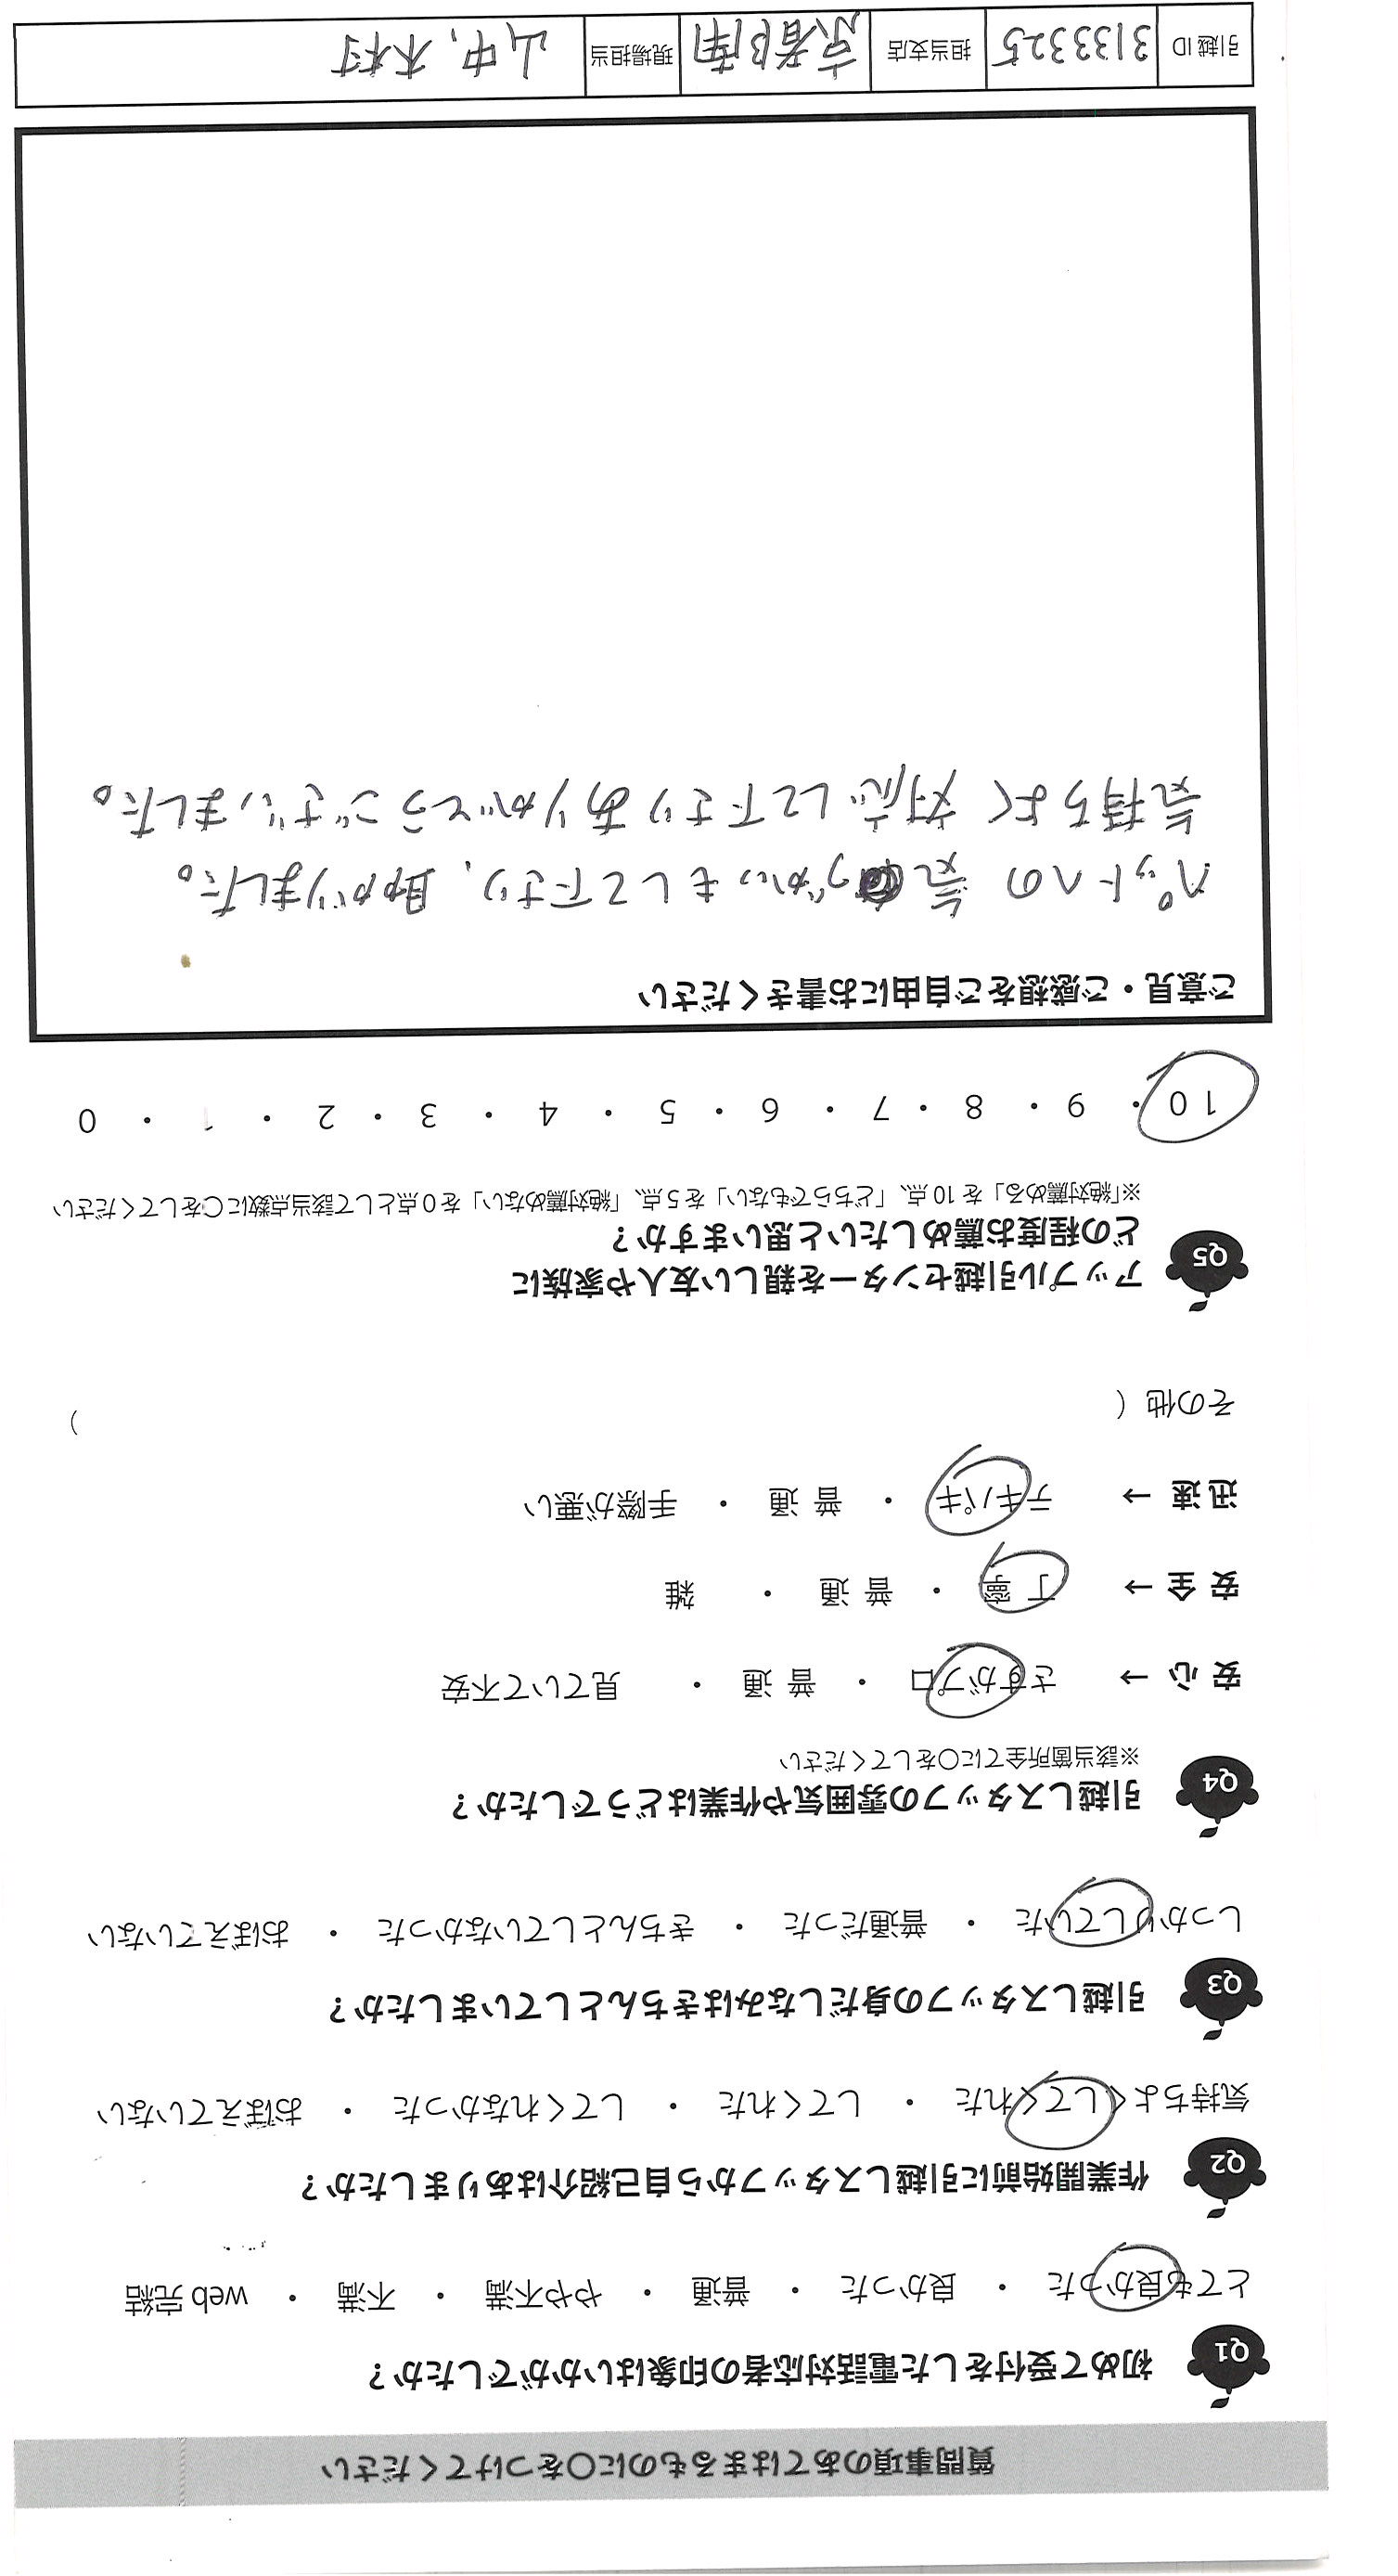 質問事項のあてはまるものに〇をつけてください
Q1 初めて受付をした電話対応者の印象はいかがでしたか？
とても良かった ・ 良かった ・ 普通 ・ やや不満 ・ 不満 ・ web 完結
Q2 作業開始前に引越しスタッフから自己紹介はありましたか？
気持ちよくしてくれた ・ してくれた ・ してくれなかった ・ おぼえていない
Q3 引越しスタッフの身だしなみはきちんとしていましたか？
しっかりしていた ・ 普通だった ・ きちんとしていなかった ・ おぼえていない
Q4 引越しスタッフの雰囲気や作業はどうでしたか？
※該当箇所全てに〇をしてください
安心 → さすがプロ ・ 普通 ・ 見ていて不安
安全 → 丁寧 ・ 普通 ・ 雑
迅速 → テキパキ ・ 普通 ・ 手際が悪い
その他（ ）
Q5 アップル引越センターを親しい友人や家族に
どの程度お薦めしたいと思いますか？
※「絶対薦める」を 10 点、「どちらでもない」を 5 点、「絶対薦めない」を 0 点として該当点数に〇をしてください
10 ・ 9 ・ 8 ・ 7 ・ 6 ・ 5 ・ 4 ・ 3 ・ 2 ・ 1 ・ 0
ご意見・ご感想をご自由にお書きください
ペットへの気づかいもして下さり、助かりました。
気持ちよく対応して下さりありがとうございました。
引越 ID 3133325 担当支店 京都南 現場担当 山中、木村